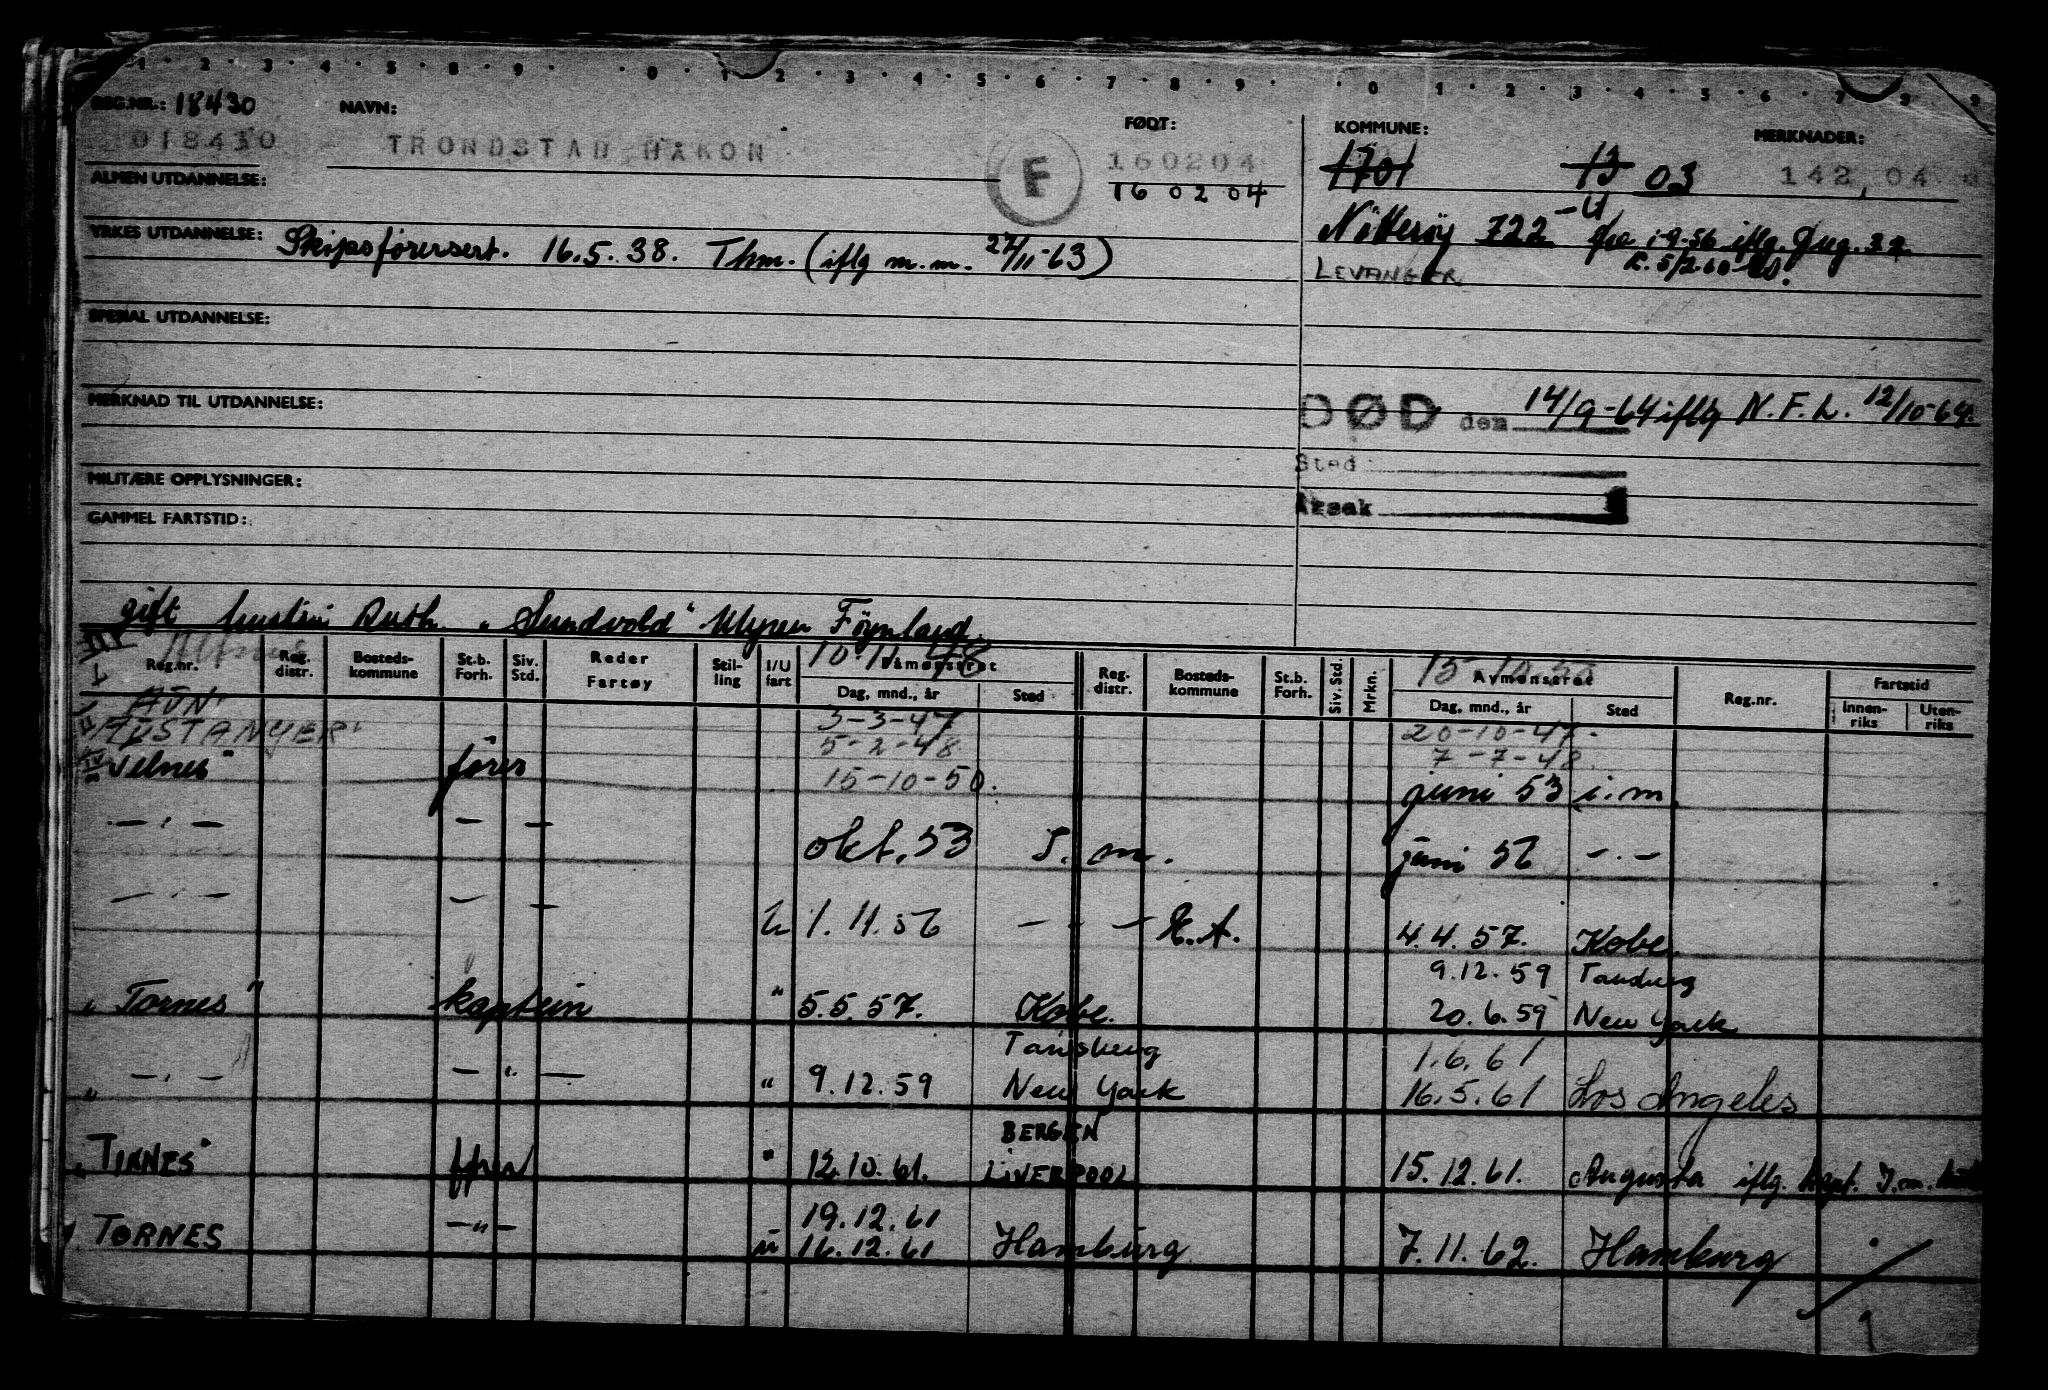 1 2 3 4 5 8 9 0 1 2 3 4 5 6 7 8 9 0 1 2 3 4 5 6 7 8 9
REG.NR.: 18430 NAVN: FØDT: KOMMUNE: MERKNADER:
018430 TRONDSTAD HÅKON F 160204 1701 13 03 142,04
ALMEN UTDANNELSE: 16 02 04
YRKES UTDANNELSE: Skipsførersert. 16.5.38. Thm. (iflg m.m. 27/11-63) Nøtterøy 722 fra 1-9-56 iflg.
LEVANGER
SPESIAL UTDANNELSE:
MERKNAD TIL UTDANNELSE: DØD den 14/9-64 iflg N.F.L. 12/10-64.
Sted
MILITÆRE OPPLYSNINGER: Årsak
GAMMEL FARTSTID:
gift Ruth. "Sundvold" Föynland.
10-11-48 15-10-50
Reg.nr. Reg. distr. Bosteds-kommune St.b. Forh. Siv. Std. Reder Fartøy Stil-ling I/U fart Påmønstret Dag, mnd., år Sted Reg. distr. Bosteds-kommune St.b. Forh. Siv. Std. Mrkn. Avmønstret Dag, mnd., år Sted Reg.nr. Fartstid Innen-riks Uten-riks
3-3-47 20-10-47.
AUSTANGER 5-2-48 7-7-48.
Velnes" fører 15-10-50. juni 53 i.m.
— . — — — okt. 53 I. m. juni 56 — . —
— . — — — u 1.11.56 — . — R.A. 4.4.57. Kobe.
9.12.59
"Tornes" kaptein " 5.5.57. Kobe. 20.6.59 New York
Tønsberg 1.6.61
" — . — — " — " 9.12.59 New York 16.5.61 Los Angeles
BERGEN
"TIRNES" fører " 12.10.61. LIVERPOOL 15.12.61. Augusta iflg. kapt. I.m.
19.12.61
TORNES — " — u 16.12.61 Hamburg 7.11.62. Hamburg